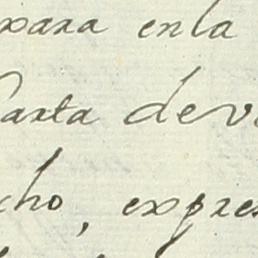 para enla
Carta dev
cho, expres